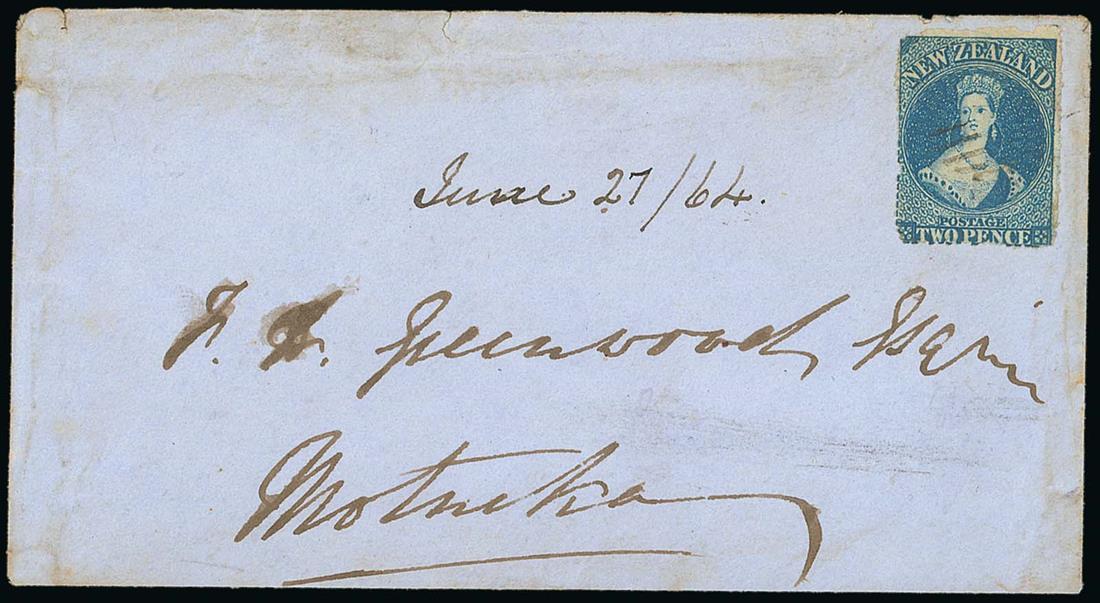 NEW ZEALAND
POSTAGE
TWO PENCE
June 27/64.
F. Greenwood, Esqr
Motueka